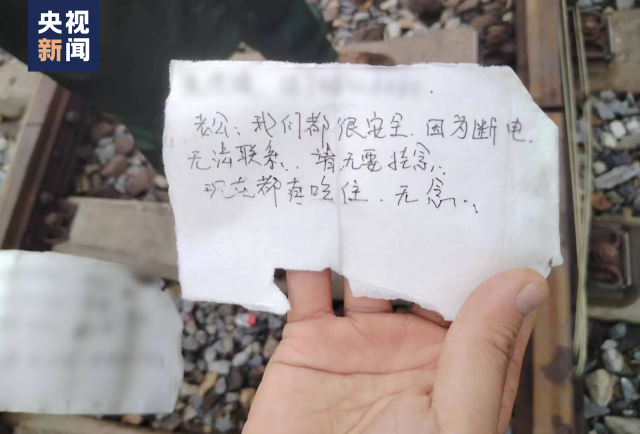 央视
新闻
老公、我们都很安全、因为断电、
无法联系、请无要挂念、
现在都有吃住、无念、